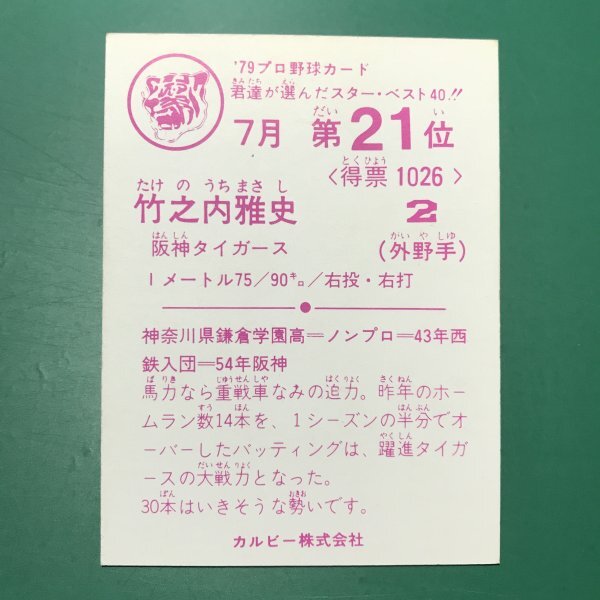 '79プロ野球カード
君達が選んだスター・ベスト40.!!
7月 第21位
<得票 1026>
たけのうちまさし
竹之内雅史 2
阪神タイガース (外野手)
1メートル75/90㌔/右投・右打
神奈川県鎌倉学園高＝ノンプロ＝43年西
鉄入団＝54年阪神
馬力なら重戦車なみの迫力。昨年のホー
ムラン数14本を、1シーズンの半分でオ
ーバーしたバッティングは、躍進タイガ
ースの大戦力となった。
30本はいきそうな勢いです。
カルビー株式会社